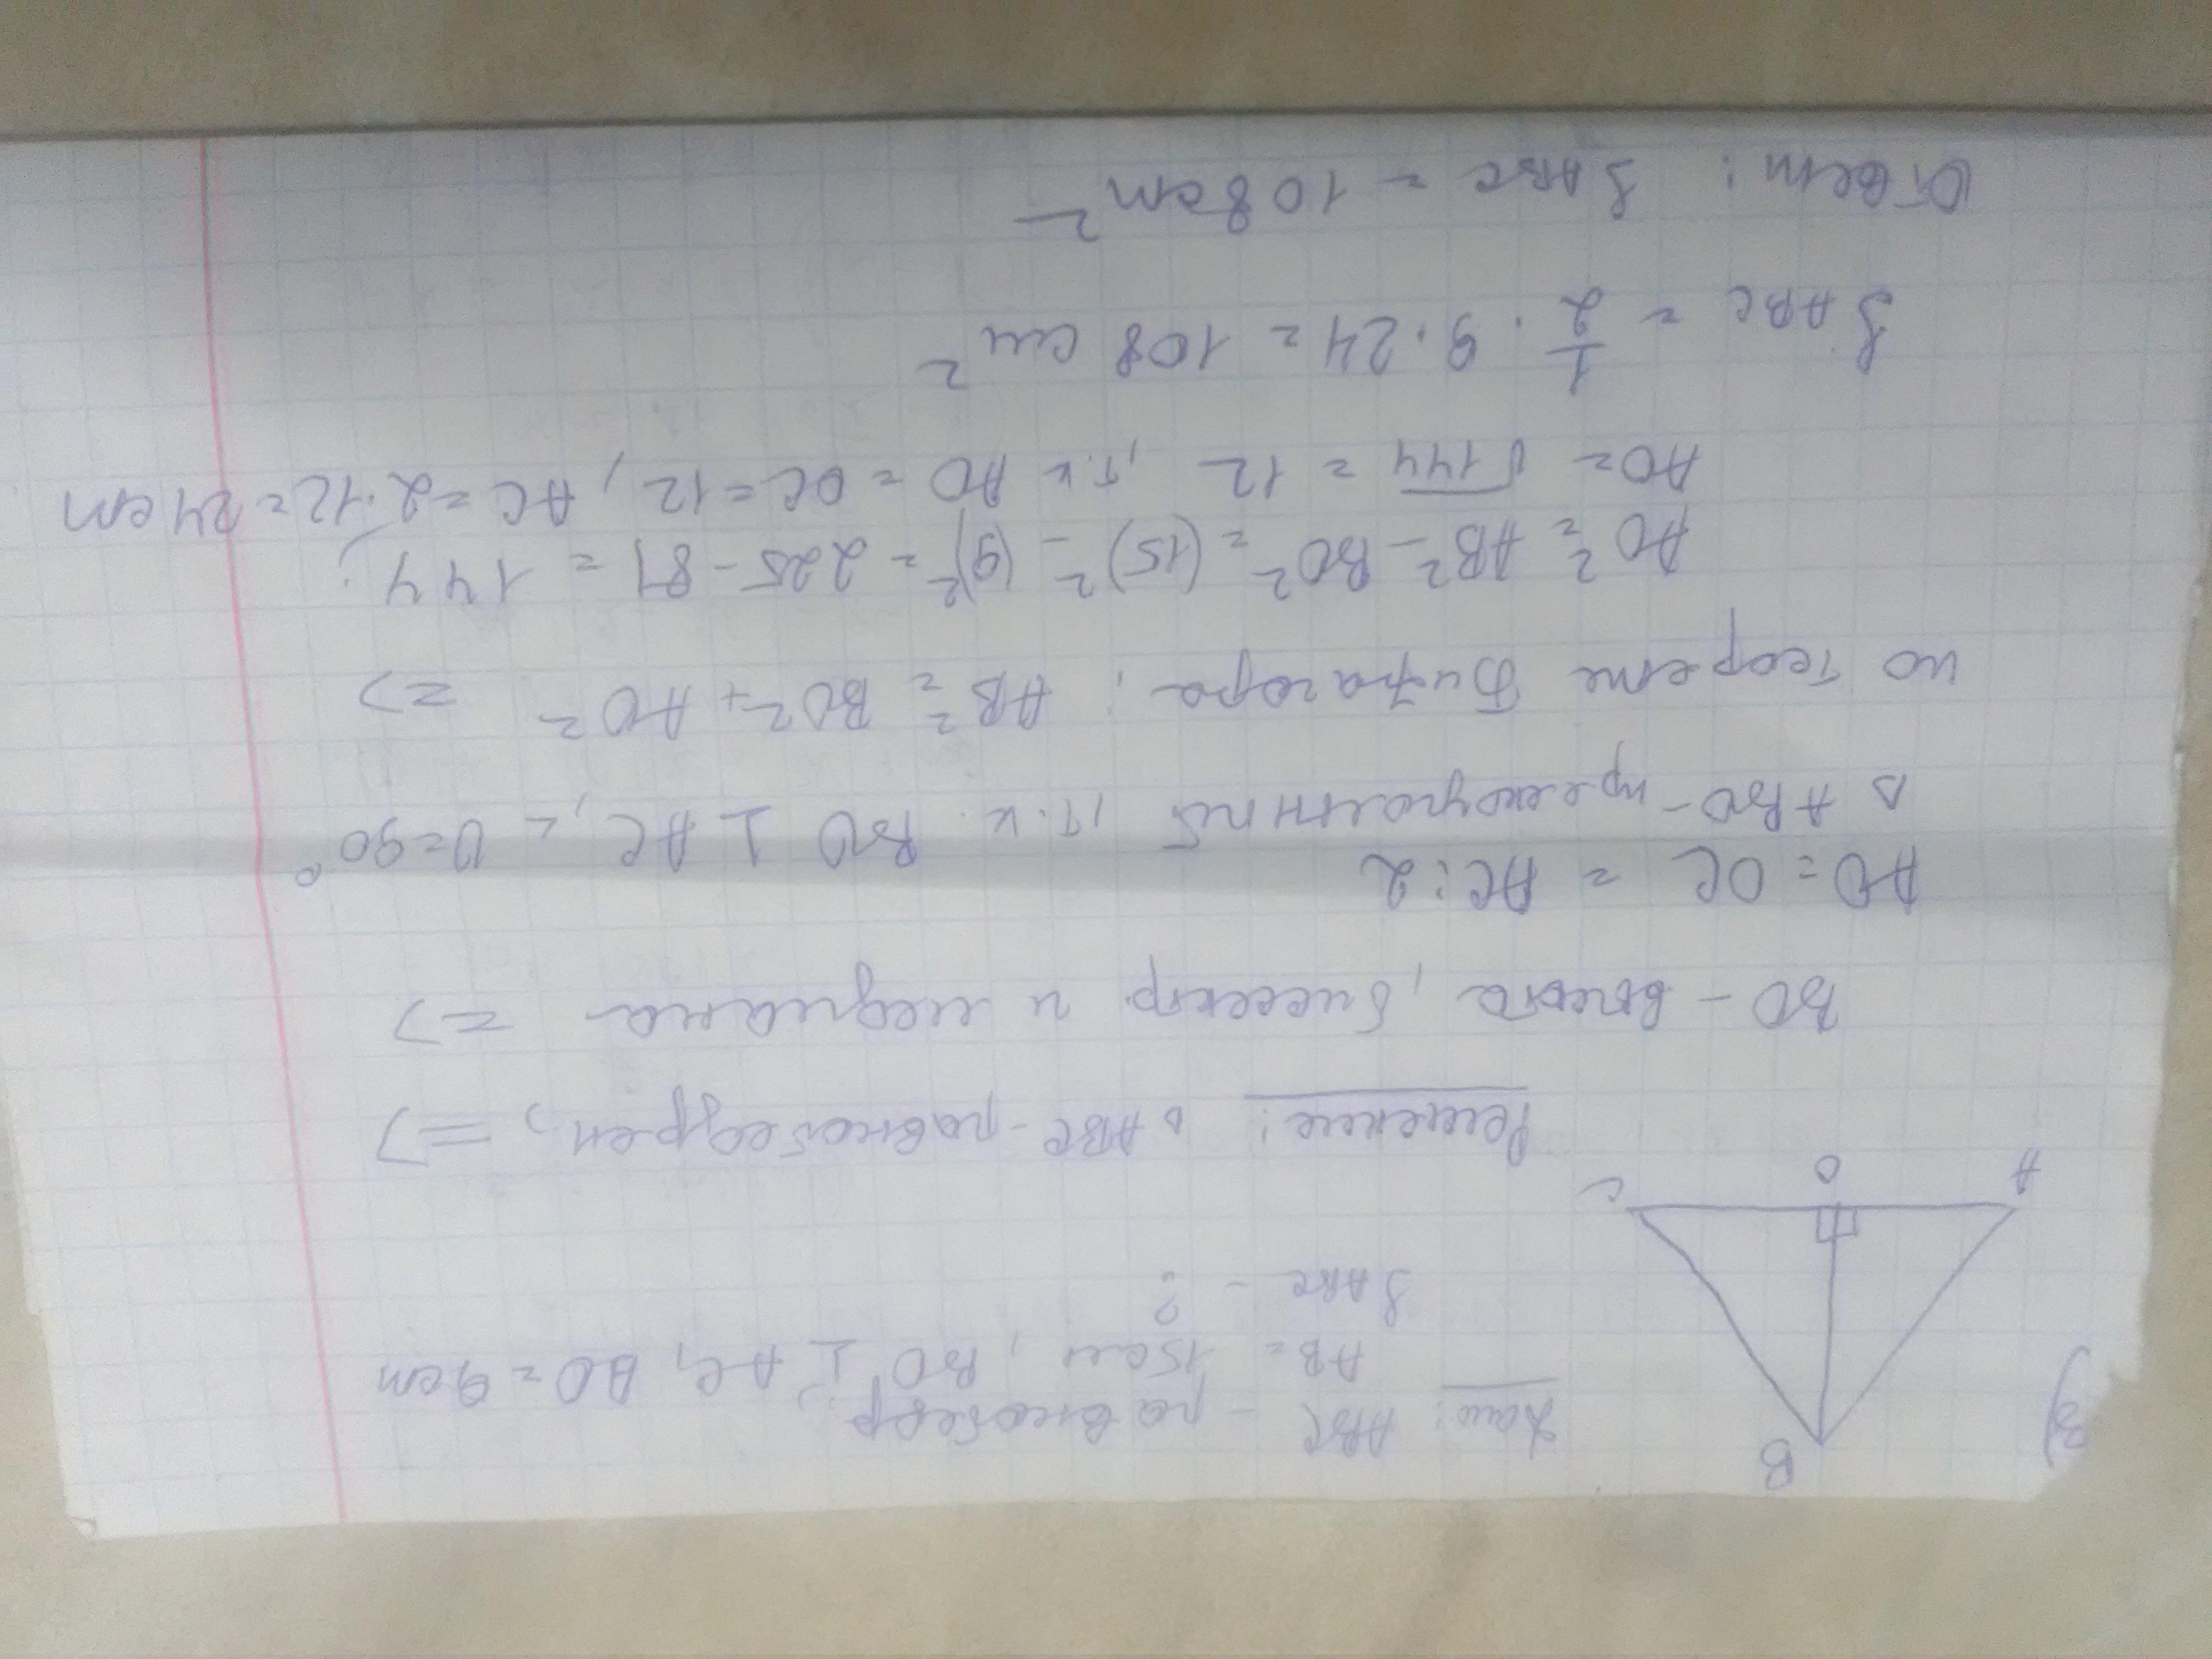 3)
B
A
O
C
Дано: ABC - равнобедр,
AB = 15см, BO ⊥ AC, BO = 9см
S ABC - ?
Решение: △ ABC - равнобедрен, =>
BO - высота, биссектр. и медиана =>
AO = OC = AC:2
△ ABO - т.к. BO ⊥ AC, ∠ O=90°
по теореме Пифагора: AB² = BO² + AO² =>
AO² = AB² - BO² = (15)² - (9)² = 225 - 81 = 144.
AO = √144 = 12, т.к AO = OC = 12, AC = 2·12 = 24см
S ABC = 1/2 · 9 · 24 = 108 см²
Ответ: S ABC = 108см²